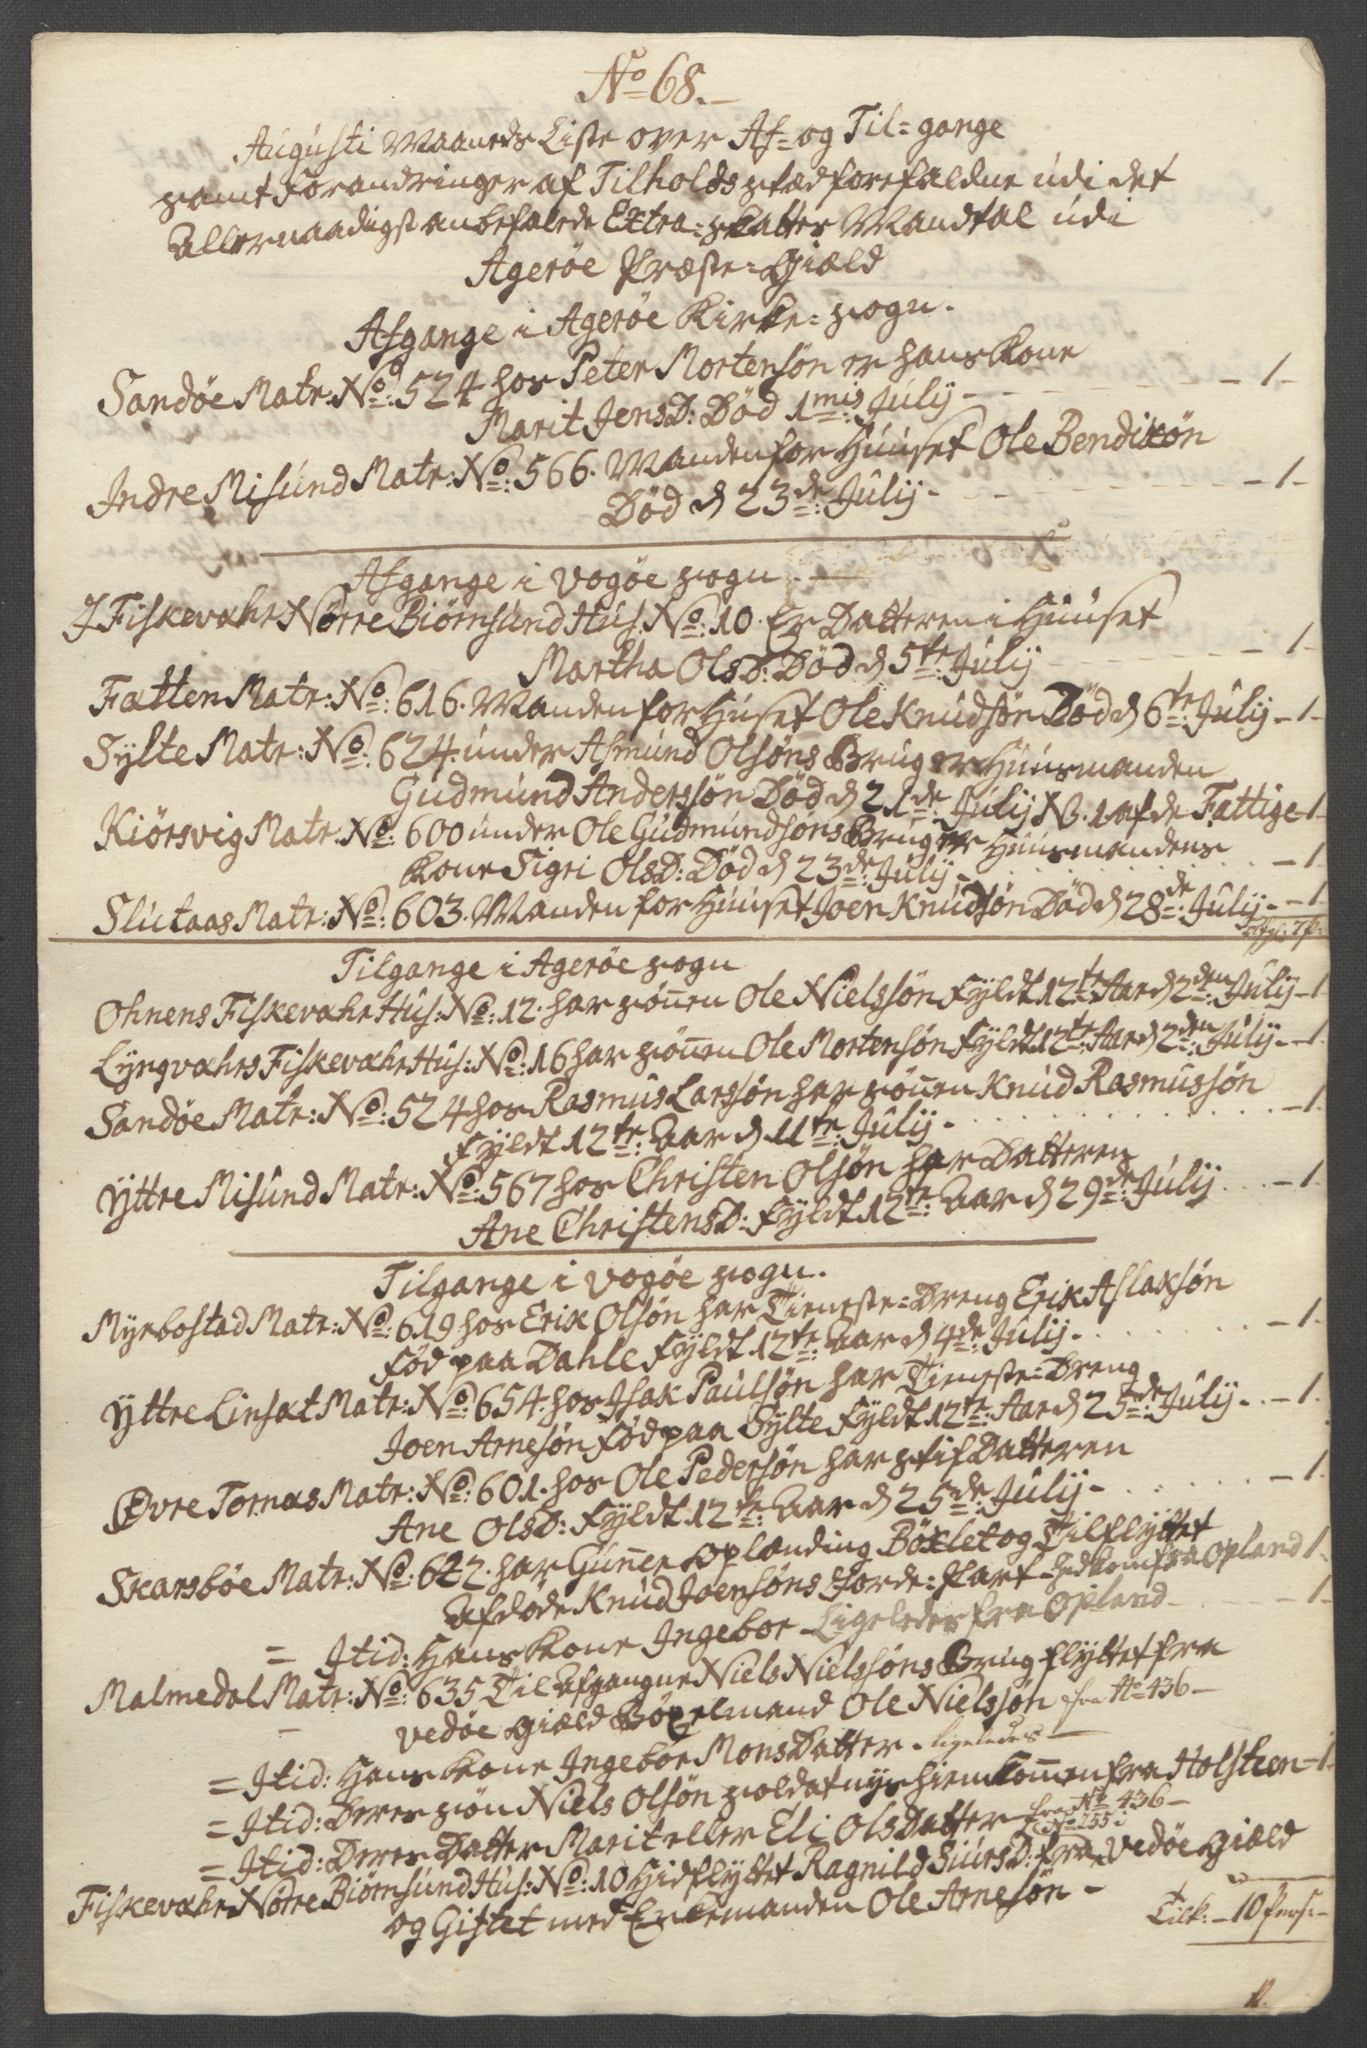 No 68.
Augusti Maaneds Liste over Af- og Til-gange
samt forandringer af Tilholds stæd forefaldne udi det
Allernaadigst anbefalede Extra-skatter Mandtal udi
Agerøe Præste-Giæld
Afgange i Agerøe Kirke-sogn.
Sandøe Matr: No: 524 hos Peter Mortensøn er hans kone
Marit JensD: Død 1mis July - 1-
Indre Misund Matr: No: 566. Manden for Huuset Ole Bendixøn
Død d 23de: July - 1-
Afgange i Vogøe sogn
I Fiskevahr Nørre Biørnsund Hus. No: 10. Er Datteren i Huuset
Martha OlsD: Død d 5te: July - 1-
Fatten Matr: No: 616. Manden for Huset Ole Knudsøn Død d 6te: July - 1-
Sylte Matr: No: 624. under Asmund Olsøns Brug er Huusmanden
Gudmund Anderssøn Død d 21de: July N. 1 af de Fattige - 1-
Kiørsvig Matr: No: 600 under Ole Gudmundsøns Brug er Huusmandens
kone Sigri OlsD: Død d 23de: July - 1
Slutaas Matr: No: 603. Manden for Huuset Joen Knudsøn Død d 28de: July - 1
Afg: 7 p:
Tilgange i Agerøe sogn
Ohnens Fiskevahr Hus: No: 12. har sønnen Ole Nielssøn fyldt 12te Aar d 2den: July - 1
Lyngvahrs Fiskevahr Hus: No: 16 har sønnen Ole Mortensøn fyldt 12te: Aar d 2den: July - 1
Sandøe Matr: No: 524 hos Rasmus Larssøn har sønnen Knud Rasmussøn
fyldt 12te: Aar d 11te: July - 1
Yttre Misund Matr: No: 567 hos Christen Olsøn har Datteren
Ane ChristensD: fyldt 12te: Aar d 29de: July - 1
Tilgange i Vogøe sogn.
Myrbostad Matr: No: 619 hos Erik Olsøn har Tieneste-Dreng Erik Aslaksøn
fød paa Dahle fyldt 12te: Aar d 4de: July - 1.
Yttre Linset Matr: No: 654. hos Isak Paulsøn har Tieneste-Dreng
Joen Arnesøn fød paa Sylte fyldt 12te: Aar d 25de: July - 1.
Øvre Tornas Matr: No: 601. hos Ole Pedersøn har stif Datteren
Ane OlsD: fyldt 12te: Aar d 25de: July - 1
Skarsbøe Matr: No: 642. har Gunner Oplænding Bøxlet og Tilflyttet
Afdøde Knud Joensøns Jorde-Part hidkom fra Opland 1
= Itid: Hans kone Ingebor Ligeledes fra Opland - 1
Malmedal Matr: No: 635 Til Afgangne Niels Nielssøns Brug flyttet fra
Vedøe Giæld Bøxelmand Ole Nielssøn fra No 436 -
= Itid: Hans kone Ingebor Mons Datter - ligeledes -
= Itid: Deres søn Niels Olsøn soldat nys hiemkommen fra Holsteen - 1.
= Itid: Deres Datter Marit eller Eli Ols Datter fra No 436 -
No 255.
Fiskevahr Nørre Biørnsund Hus: No: 10 Hidflyttet Ragnild SiursD: fra Vedøe Giæld
og Giftet med Enkemanden Ole Arnesøn -
Tilk: - 10 pers: -